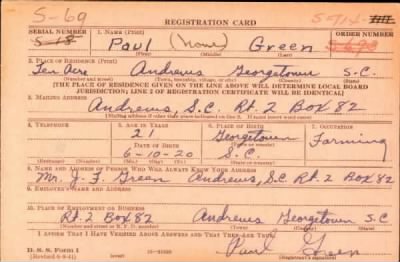 S-69
REGISTRATION CARD
SERIAL NUMBER 1. NAME (Print) ORDER NUMBER
S-18 Paul (None) Green
(First) (Middle) (Last)
2. PLACE OF RESIDENCE (Print)
Ten Acre Andrews Georgetown S.C.
(Number and street) (Town, township, village, or city) (County) (State)
[THE PLACE OF RESIDENCE GIVEN ON THE LINE ABOVE WILL DETERMINE LOCAL BOARD
JURISDICTION; LINE 2 OF REGISTRATION CERTIFICATE WILL BE IDENTICAL]
3. MAILING ADDRESS
Andrews, S.C. Rt. 2 Box 82
[Mailing address if other than place indicated on line 2. If same insert word same]
4. TELEPHONE 5. AGE IN YEARS 6. PLACE OF BIRTH 7. OCCUPATION
21 Georgetown Farming
DATE OF BIRTH
6-10-20 S.C.
(Mo.) (Day) (Yr.) (State or country)
8. NAME AND ADDRESS OF PERSON WHO WILL ALWAYS KNOW YOUR ADDRESS
Mr. J. F. Green Andrews, S.C. Rt. 2 Box 82
9. EMPLOYER'S NAME AND ADDRESS
10. PLACE OF EMPLOYMENT OR BUSINESS
Rt. 2 Box 82 Andrews Georgetown S.C
(Number and street or R. F. D. number) (Town) (County) (State)
I AFFIRM THAT I HAVE VERIFIED ABOVE ANSWERS AND THAT THEY ARE TRUE.
D. S. S. Form 1 Paul Green
(Revised 6-9-41) (Registrant's signature)